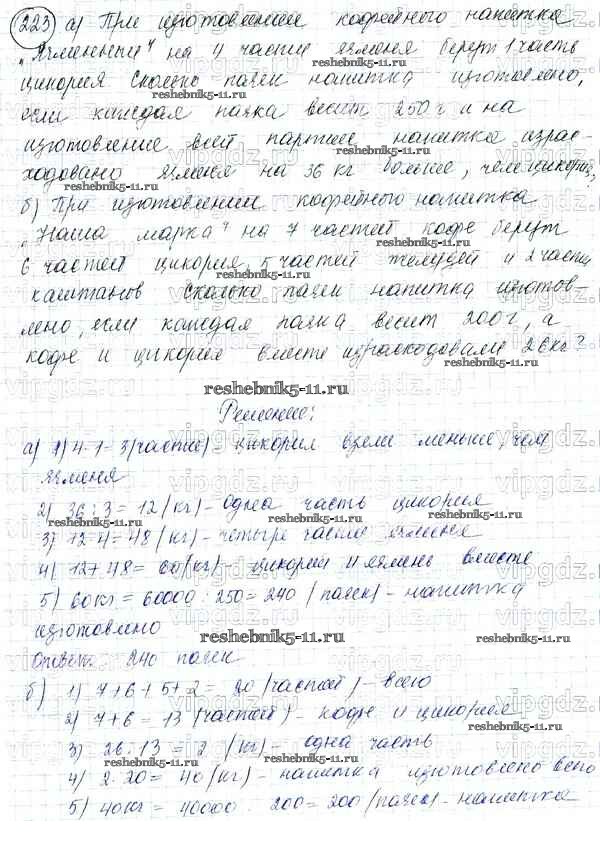 223 а) При изготовлении кофейного напитка
„Ячменный" на 4 части ячменя берут 1 часть
цикория Сколько пачек напитка изготовлено,
если каждая пачка весит 250 г и на
изготовление всей партии напитка израс-
ходовано ячменя на 36 кг больше, чем цикория?
б) При изготовлении кофейного напитка
„Наша марка" на 7 частей кофе берут
6 частей цикория, 5 частей желудей и 2 части
каштанов Сколько пачек напитка изготов-
лено, если каждая пачка весит 200 г, а
кофе и цикория вместе израсходовали 26 кг?
reshebnik5-11.ru
Решение:
а) 1) 4-1=3 (части) - цикория взяли меньше, чем
ячменя
2) 36:3=12 (кг) - одна часть цикория
3) 12·4=48 (кг) - четыре части ячменя
4) 12+48=60 (кг) - цикорий и ячмень вместе
5) 60кг = 60000 : 250 = 240 (пачек) - напитка
изготовлено
reshebnik5-11.ru
Ответ: 240 пачек
б) 1) 7+6+5+2=20 (частей) - всего
2) 7+6=13 (частей) - кофе и цикория
3) 26:13=2 (кг) - одна часть
4) 2·20=40 (кг) - напитка изготовлено всего
5) 40кг = 40000 : 200 = 200 (пачек) - напитка